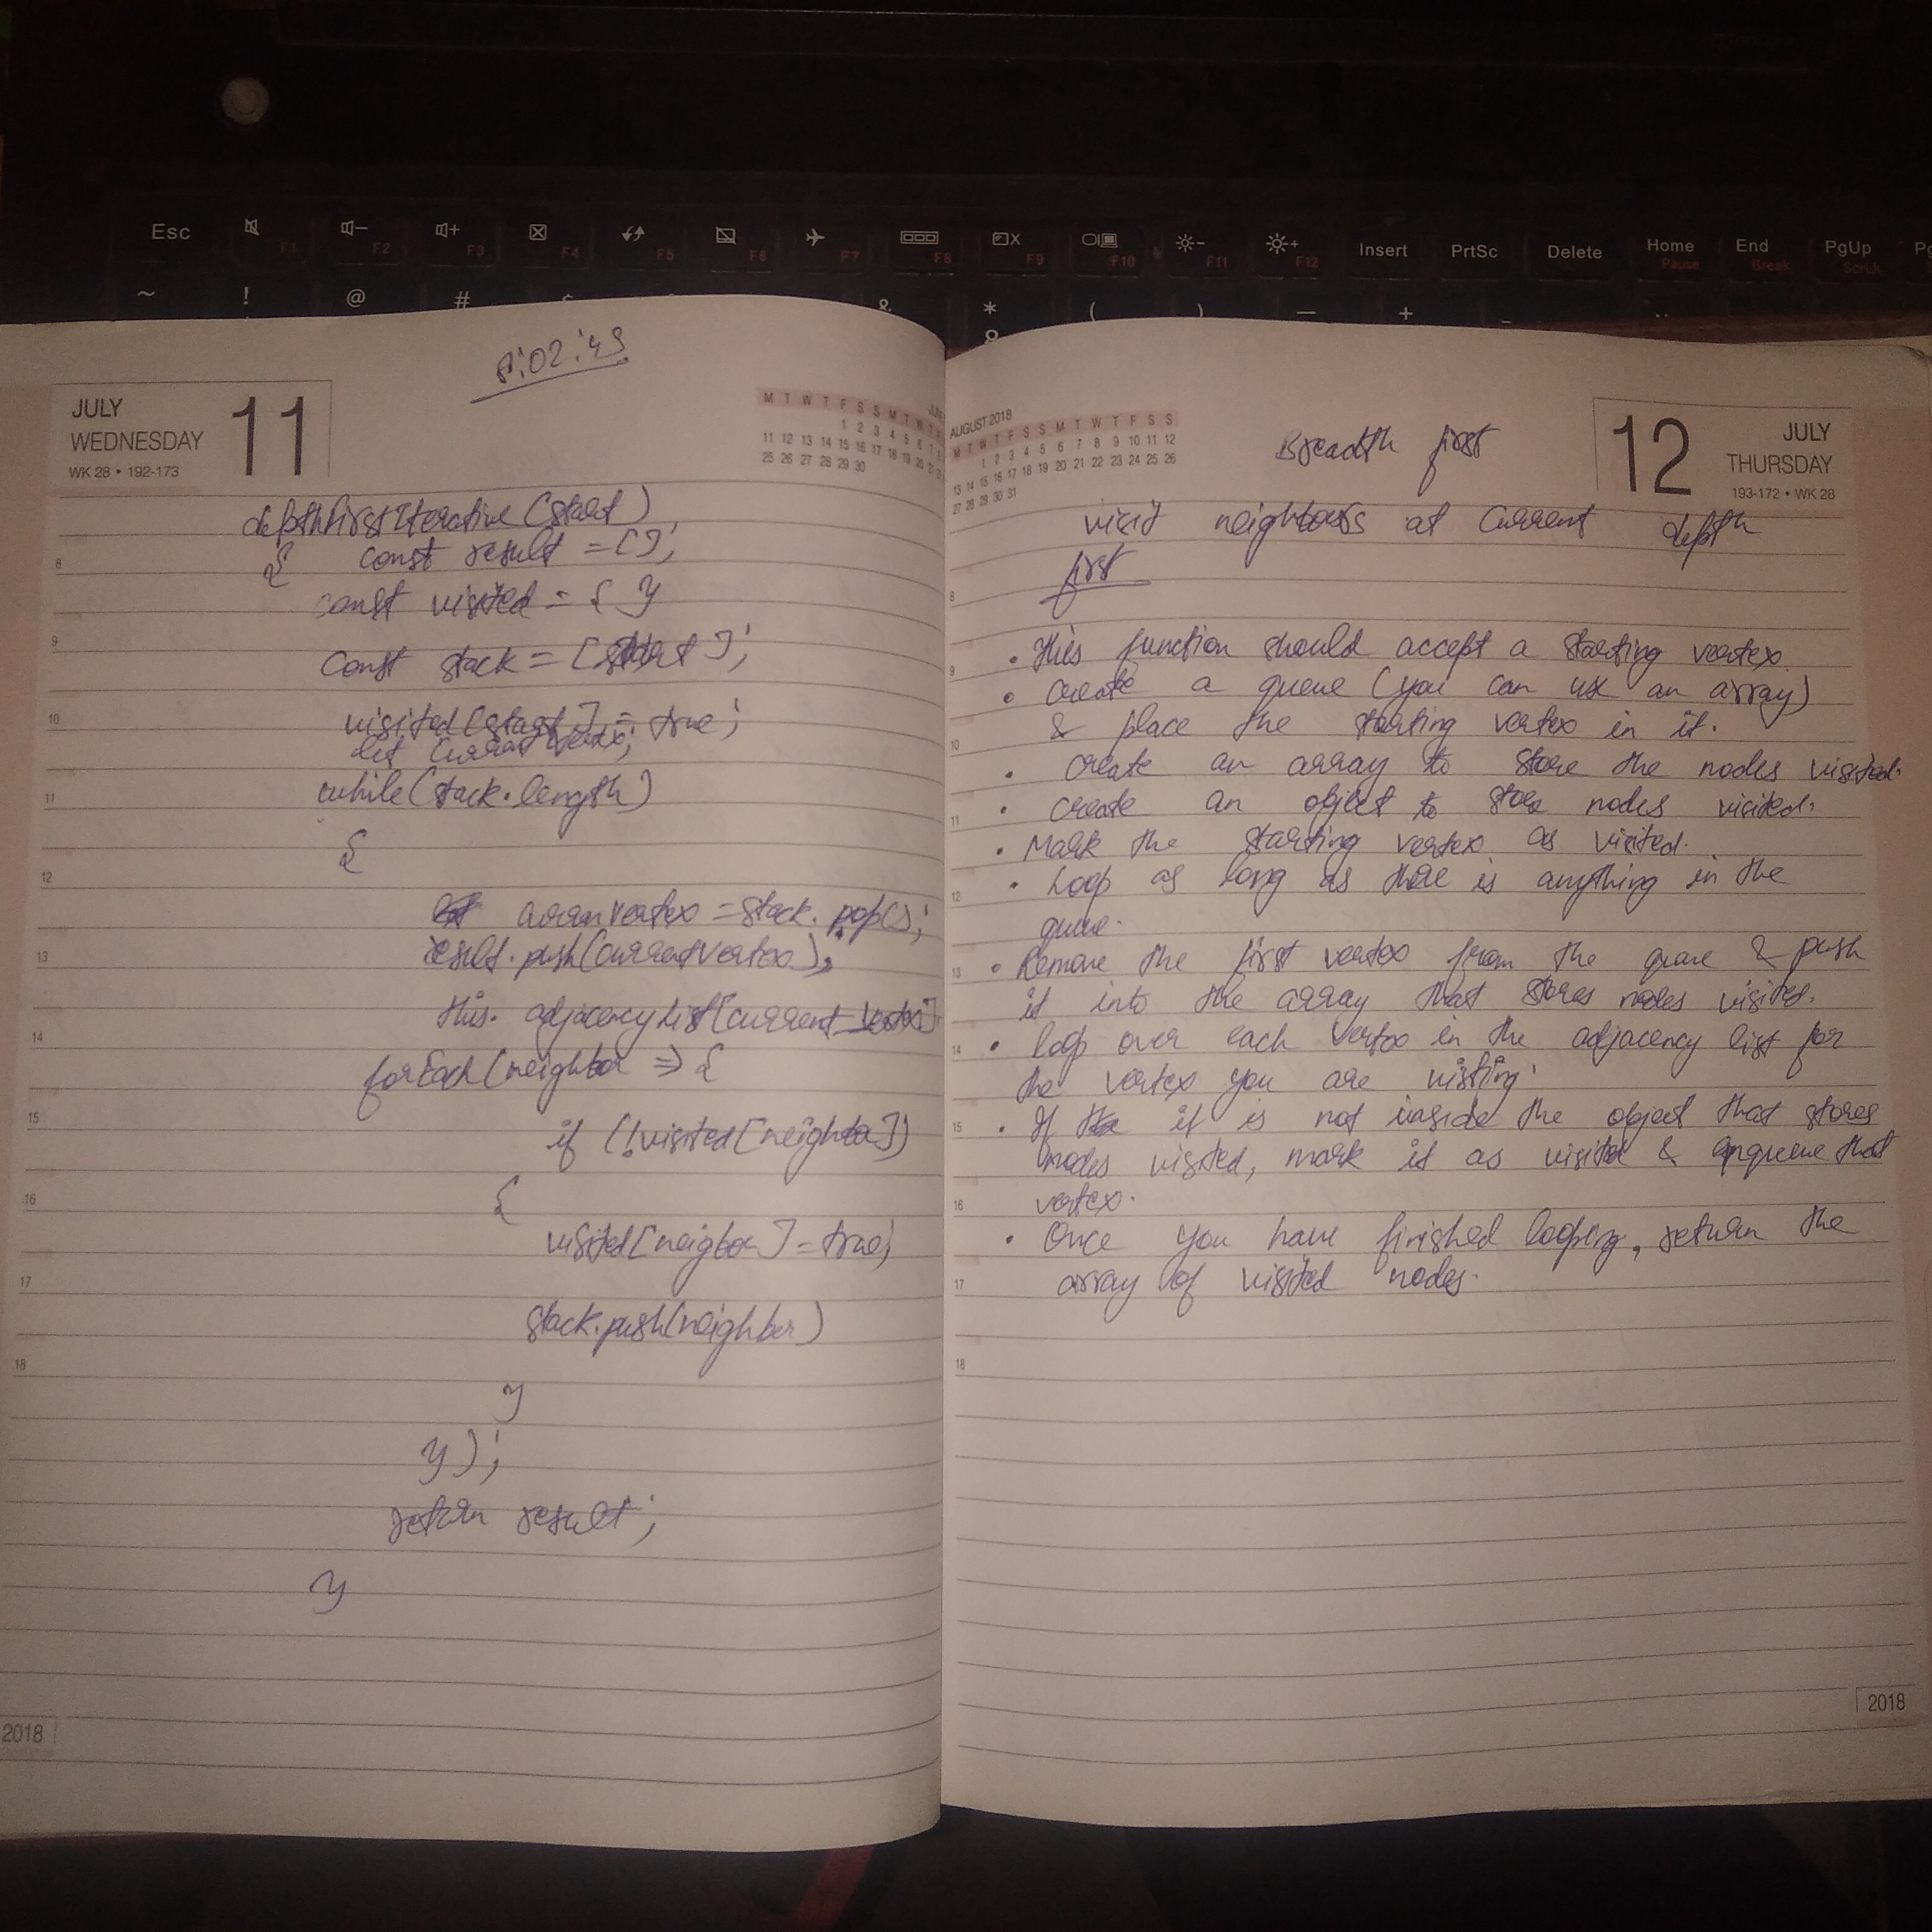 Esc F1 F2 F3 F4 F5 F6 F7 F8 F9 F10 F11 F12 Insert PrtSc Delete Home End PgUp
Pause Break ScrLk
~ ! @ # & * ( ) — +
8
:02:
JULY
WEDNESDAY
WK 28 • 192-173
11
M T W T F S S M T W T F
1 2 3 4 5 6 7
11 12 13 14 15 16 17 18 19 20
25 26 27 28 29 30
depthfirstIterative(start)
{ const result = [];
8
const visited = { }
9
const stack = [start];
10
visited[start] = true;
let currentVertex;
while(stack.length)
11
{
12
vertex = stack.pop();
result.push(currentVertex);
13
this. adjacencyList[current vertex]
14
forEach(neighbor => {
15
if (!visited[neighbor])
16
{
visited[neigbor] = true;
17
stack.push(neighbor)
18
}
});
return result;
}
2018
AUGUST 2018
M T W T F S S M T W T F S S
1 2 3 4 5 6 7 8 9 10 11 12
13 14 15 16 17 18 19 20 21 22 23 24 25 26
27 28 29 30 31
Breadth first
12
JULY
THURSDAY
193-172 • WK 28
visit neighbours at current depth
first
8
• This function should accept a starting vertex.
9
• create a queue (you can use an array)
& place the starting vertex in it.
10
• create an array to store the nodes visited.
• create an object to store nodes visited.
11
• Mark the starting vertex as visited.
• Loop as long as there is anything in the
12
queue.
• Remove the first vertex from the queue & push
13
it into the array that stores nodes visited.
• loop over each vertex in the adjacency list for
14
the vertex you are visting.
• If it is not inside the object that stores
15
nodes visited, mark it as visited & enqueue that
vertex.
16
• Once you have finished looping, return the
array of visited nodes.
17
18
2018